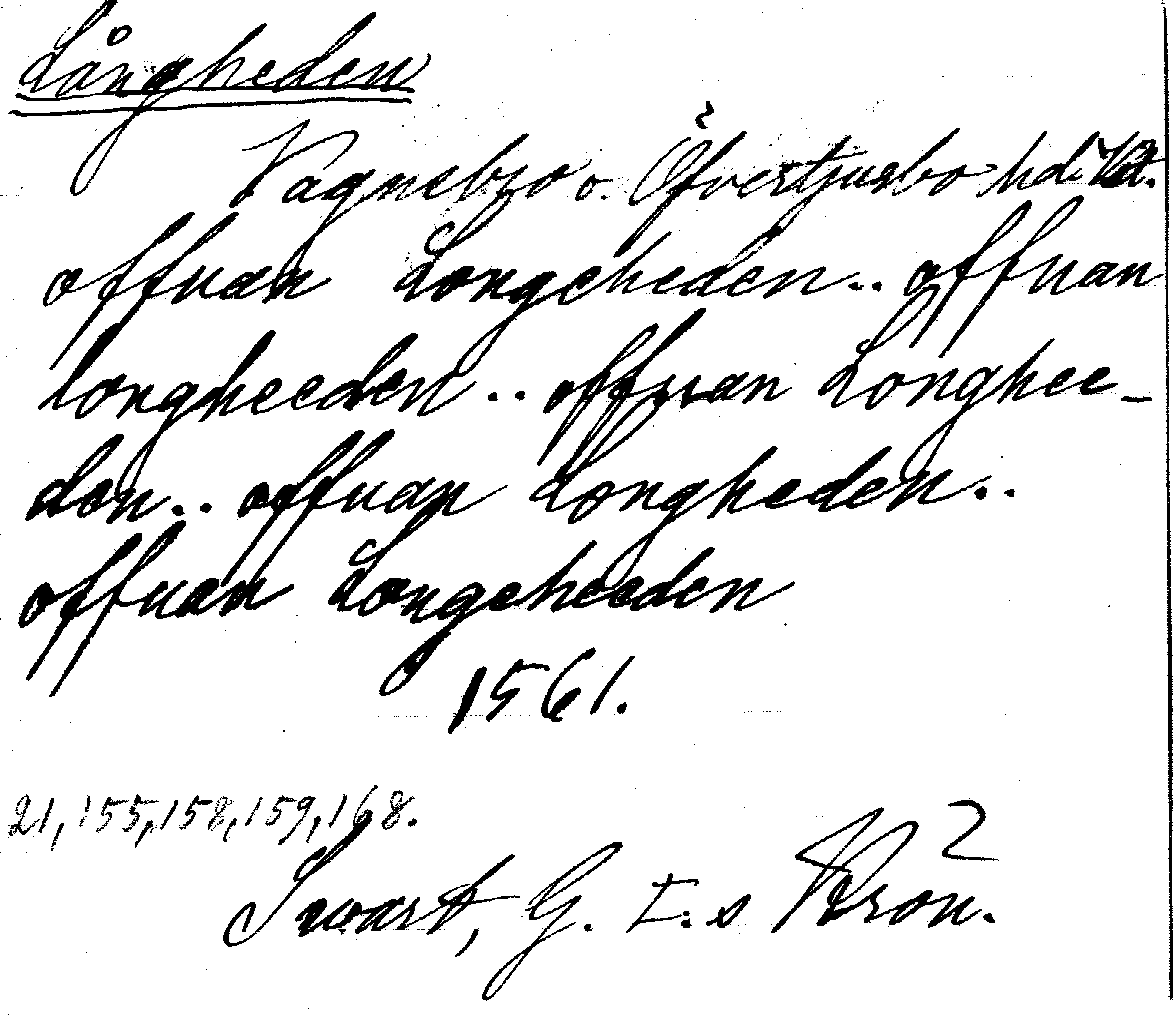 Långheden
Vagnsbro o. Öfvertjusbo hd.
offuan Longeheden.. offuan
longheeden.. offuan Longhee-
den.. offuan Longheden..
offuan Longeheeden
1561.
21, 155, 158, 159, 168.
Swart, G. I.s Krön. 2